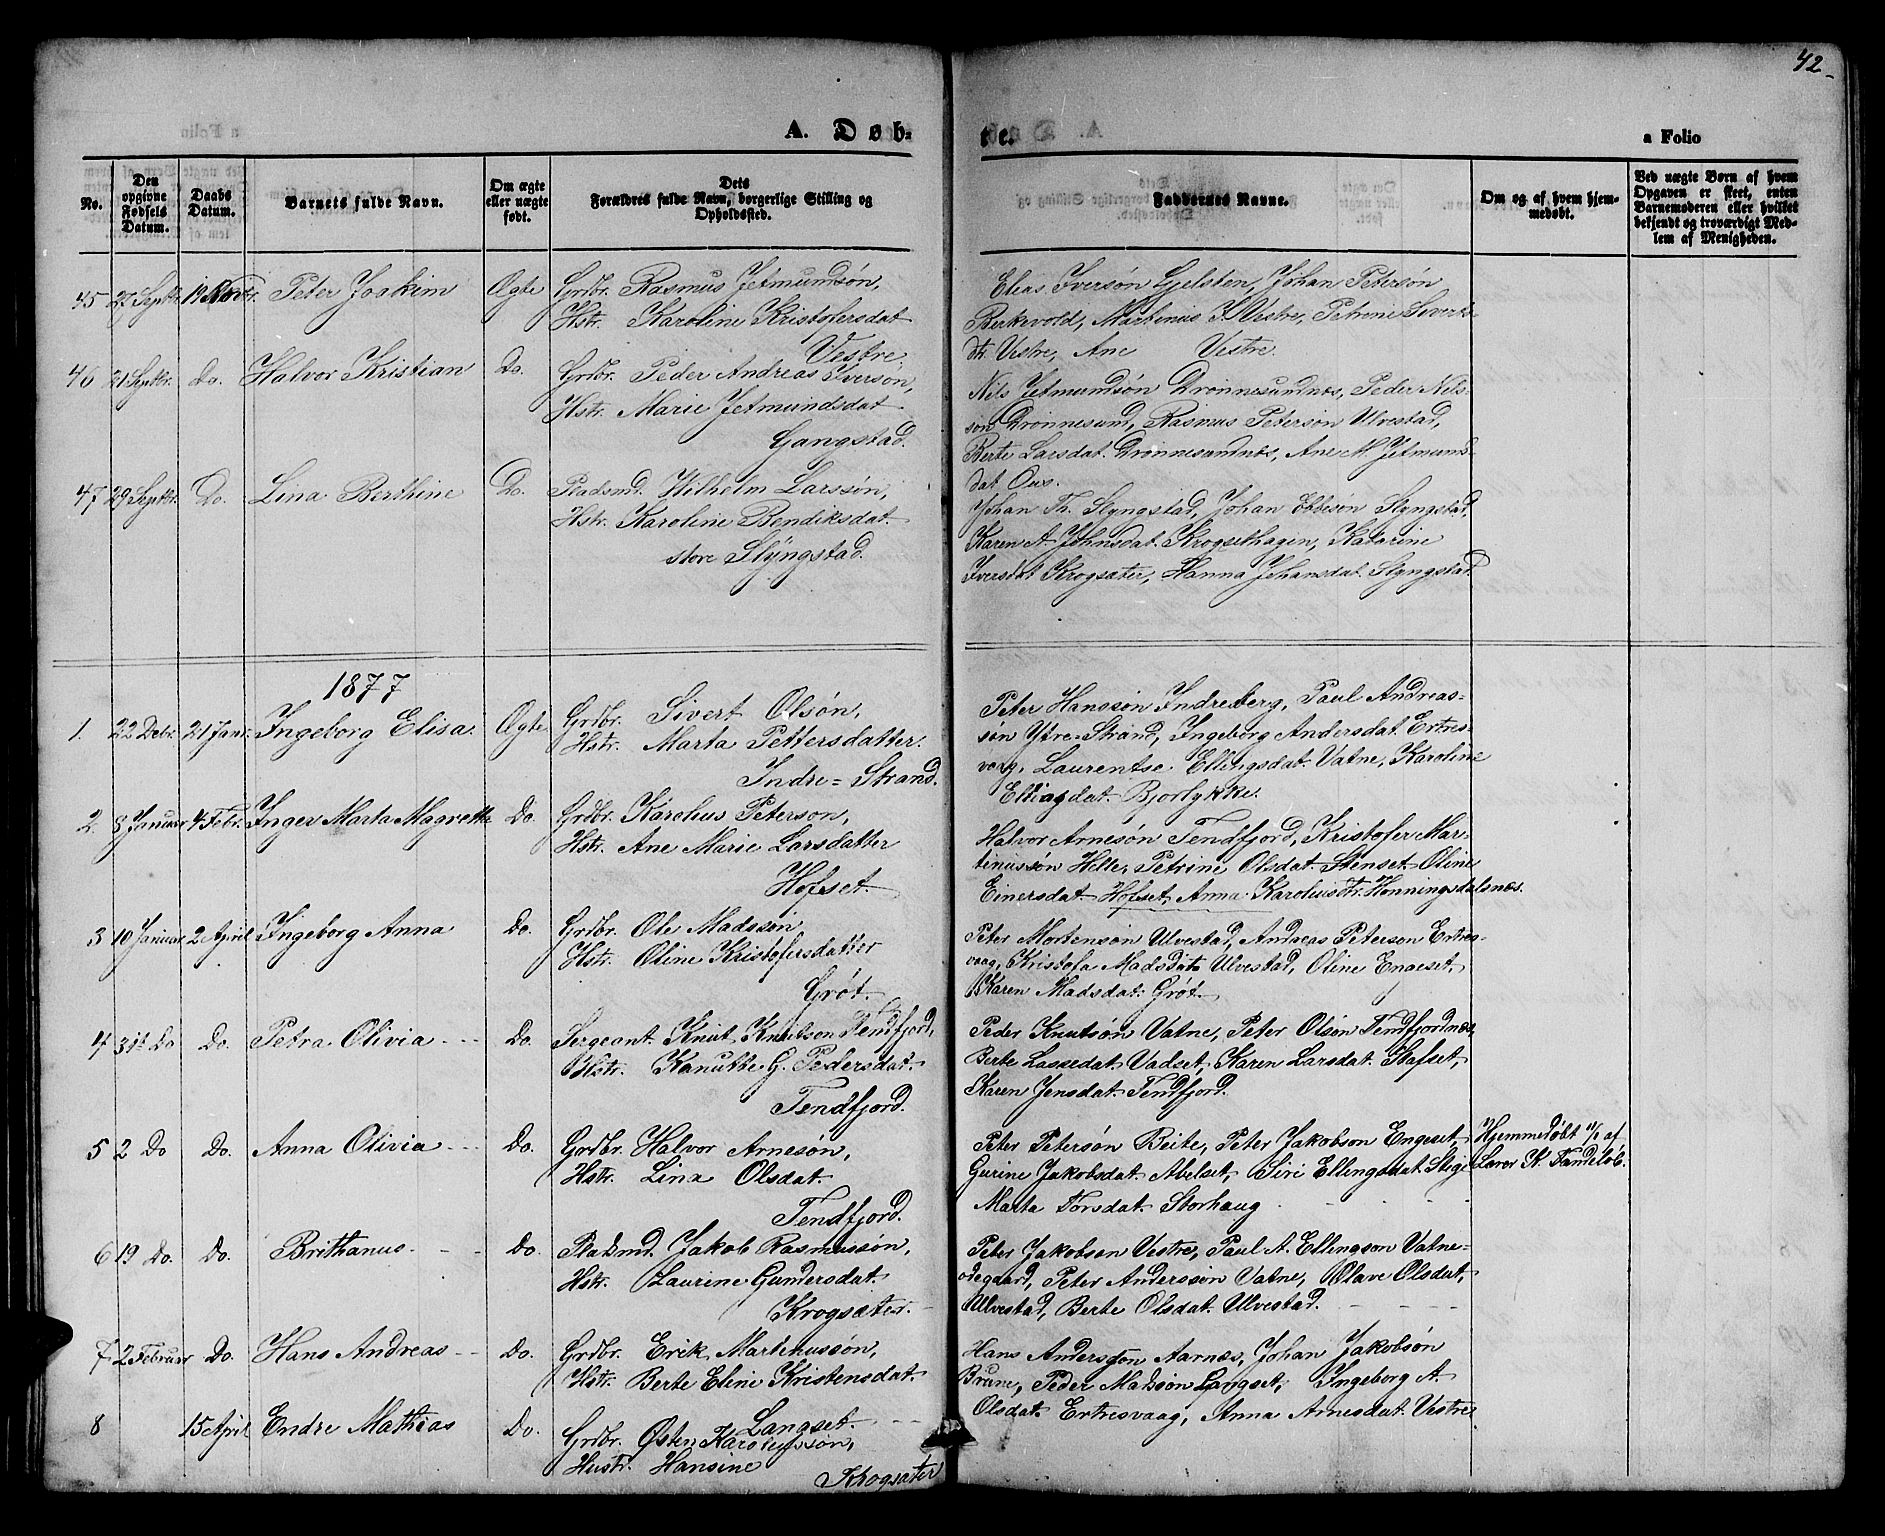 42
A. Døb-
te.
a Folio
No.
Den opgivne Fødsels Datum.
Daabs Datum.
Barnets fulde Navn.
Om ægte eller uægte født.
Dets Forældres fulde Navn, borgerlige Stilling og Opholdssted.
Faddernes Navne.
Om og af hvem hjemmedøbt.
Ved uægte Børn af hvem Opgaven er skeet, enten Barnemoderen eller hvilket bekjendt og troværdigt Medlem af Menigheden.
45 27 Septbr. 19 Novbr. Peter Joakim Ægte Grdbr. Rasmus Jetmundsøn,
Hstr. Karoline Kristofersdat
Vestre.
Elias Iversøn Gjelsten, Johan Petersøn
Berkvold, Martinus J. Vestre, Petrine Siverts-
dt. Vestre, Ane Vestre.
46 21 Septbr. Do. Halvor Kristian Do. Grdbr. Peder Andreas Iversøn,
Hstr. Marie Jetmundsdat
Gangstad.
Nils Jetmundsøn Drønnesundnæs, Peder Nils-
søn Drønnesund, Rasmus Petersøn Ulvestad,
Berte Larsdat. Drønnesundnæs, Ane M. Jetmunds-
dat Ous.
47 29 Septbr. Do. Lina Berthine Do. Pladsmd. Wilhelm Larssøn,
Hstr. Karoline Bendiksdat.
store Slyngstad.
Johan Th. Slyngstad, Johan Ebbesøn Slyngstad,
Karen A. Johnsdat. Krogsethagen, Katarine
Iversdat Krogsæter, Hanna Johansdat. Slyngstad.
1877
1. 22 Debr. 21 Janr. Ingeborg Elisa. Ægte Grdbr. Sivert Olsøn,
Hstr. Marta Pettersdatter.
Indre=Strand.
Peter Hanssøn Indreberg, Paul Andreas-
søn Ytre-Strand, Ingeborg Andersdat. Ertres-
vaag, Laurentse Ellingsdat. Vatne, Karoline
Ellingdat. Bjorlykke.
2. 8 Januar 4 Febr. Inger Marta Magrethe Do. Grdbr. Karolius Peterson,
Hstr. Ane Marie Larsdatter
Hofset.
Halvor Arnesøn Tendfjord, Kristofer Mar-
tinussøn Helle, Petrine Olsdat Stenset. Oline
Einersdat. Hofset, Anna Karoliusdtr. Honningsdalsnæs.
3 10 Januar 2 April Ingeborg Anna Do. Grdbr. Ole Madssøn
Hstr. Oline Kristofersdatter
Grøt.
Peter Mortensøn Ulvestad, Andreas Peterson Ertres-
vaag, Kristofa Madsdat. Ulvestad, Oline Engeset,
Karen Madsdat. Grøt.
4 31te Do Do. Petra Olivia Do. Sergeant Knut Knutson Tendfjord,
Hstr. Kanutte G. Pedersdat.
Tendfjord.
Peder Knutsøn Vatne, Peter Olsøn Tendfjordnæs,
Berte Lassedat. Vadset, Karen Larsdat. Stafset,
Karen Jensdat. Tendfjord.
5 2 Do Do. Anna Olivia Do. Grdbr. Halvor Arnesøn,
Hstr. Lina Olsdat.
Tendfjord.
Peter Petersøn Beite, Peter Jakobson Engeset,
Gurine Jakobsdat. Abelset, Siri Ellingsdat. Stige
Marta Torsdat. Storhaug
Hjemmedøbt 11/2 af
Lærer K. Tandeløb.
6 19 Do. Do. Brithanus Do. Pladsmd. Jakob Rasmussøn,
Hstr. Laurine Gundersdat.
Krogsæter.
Peter Jakobson Vestre, Paul A. Ellingson Vatne-
ødegaard, Peter Anderssøn Vatne, Olave Olsdat,
Ulvestad, Berte Olsdat. Ulvestad.
7 2 Februar Do. Hans Andreas Do. Grdbr. Erik Martinussøn,
Hstr. Berte Eline Kristensdat.
Langset.
Hans Anderssøn Aarnæs, Johan Jakobsøn
Brune, Peder Madsøn Langset, Ingeborg A.
Olsdat. Ertresvaag, Anna Arnesdat. Vestre
8 15 April Endre Mathias Do. Grdbr. Østen Karolussøn,
Hustr. Hansine
Krogsæter